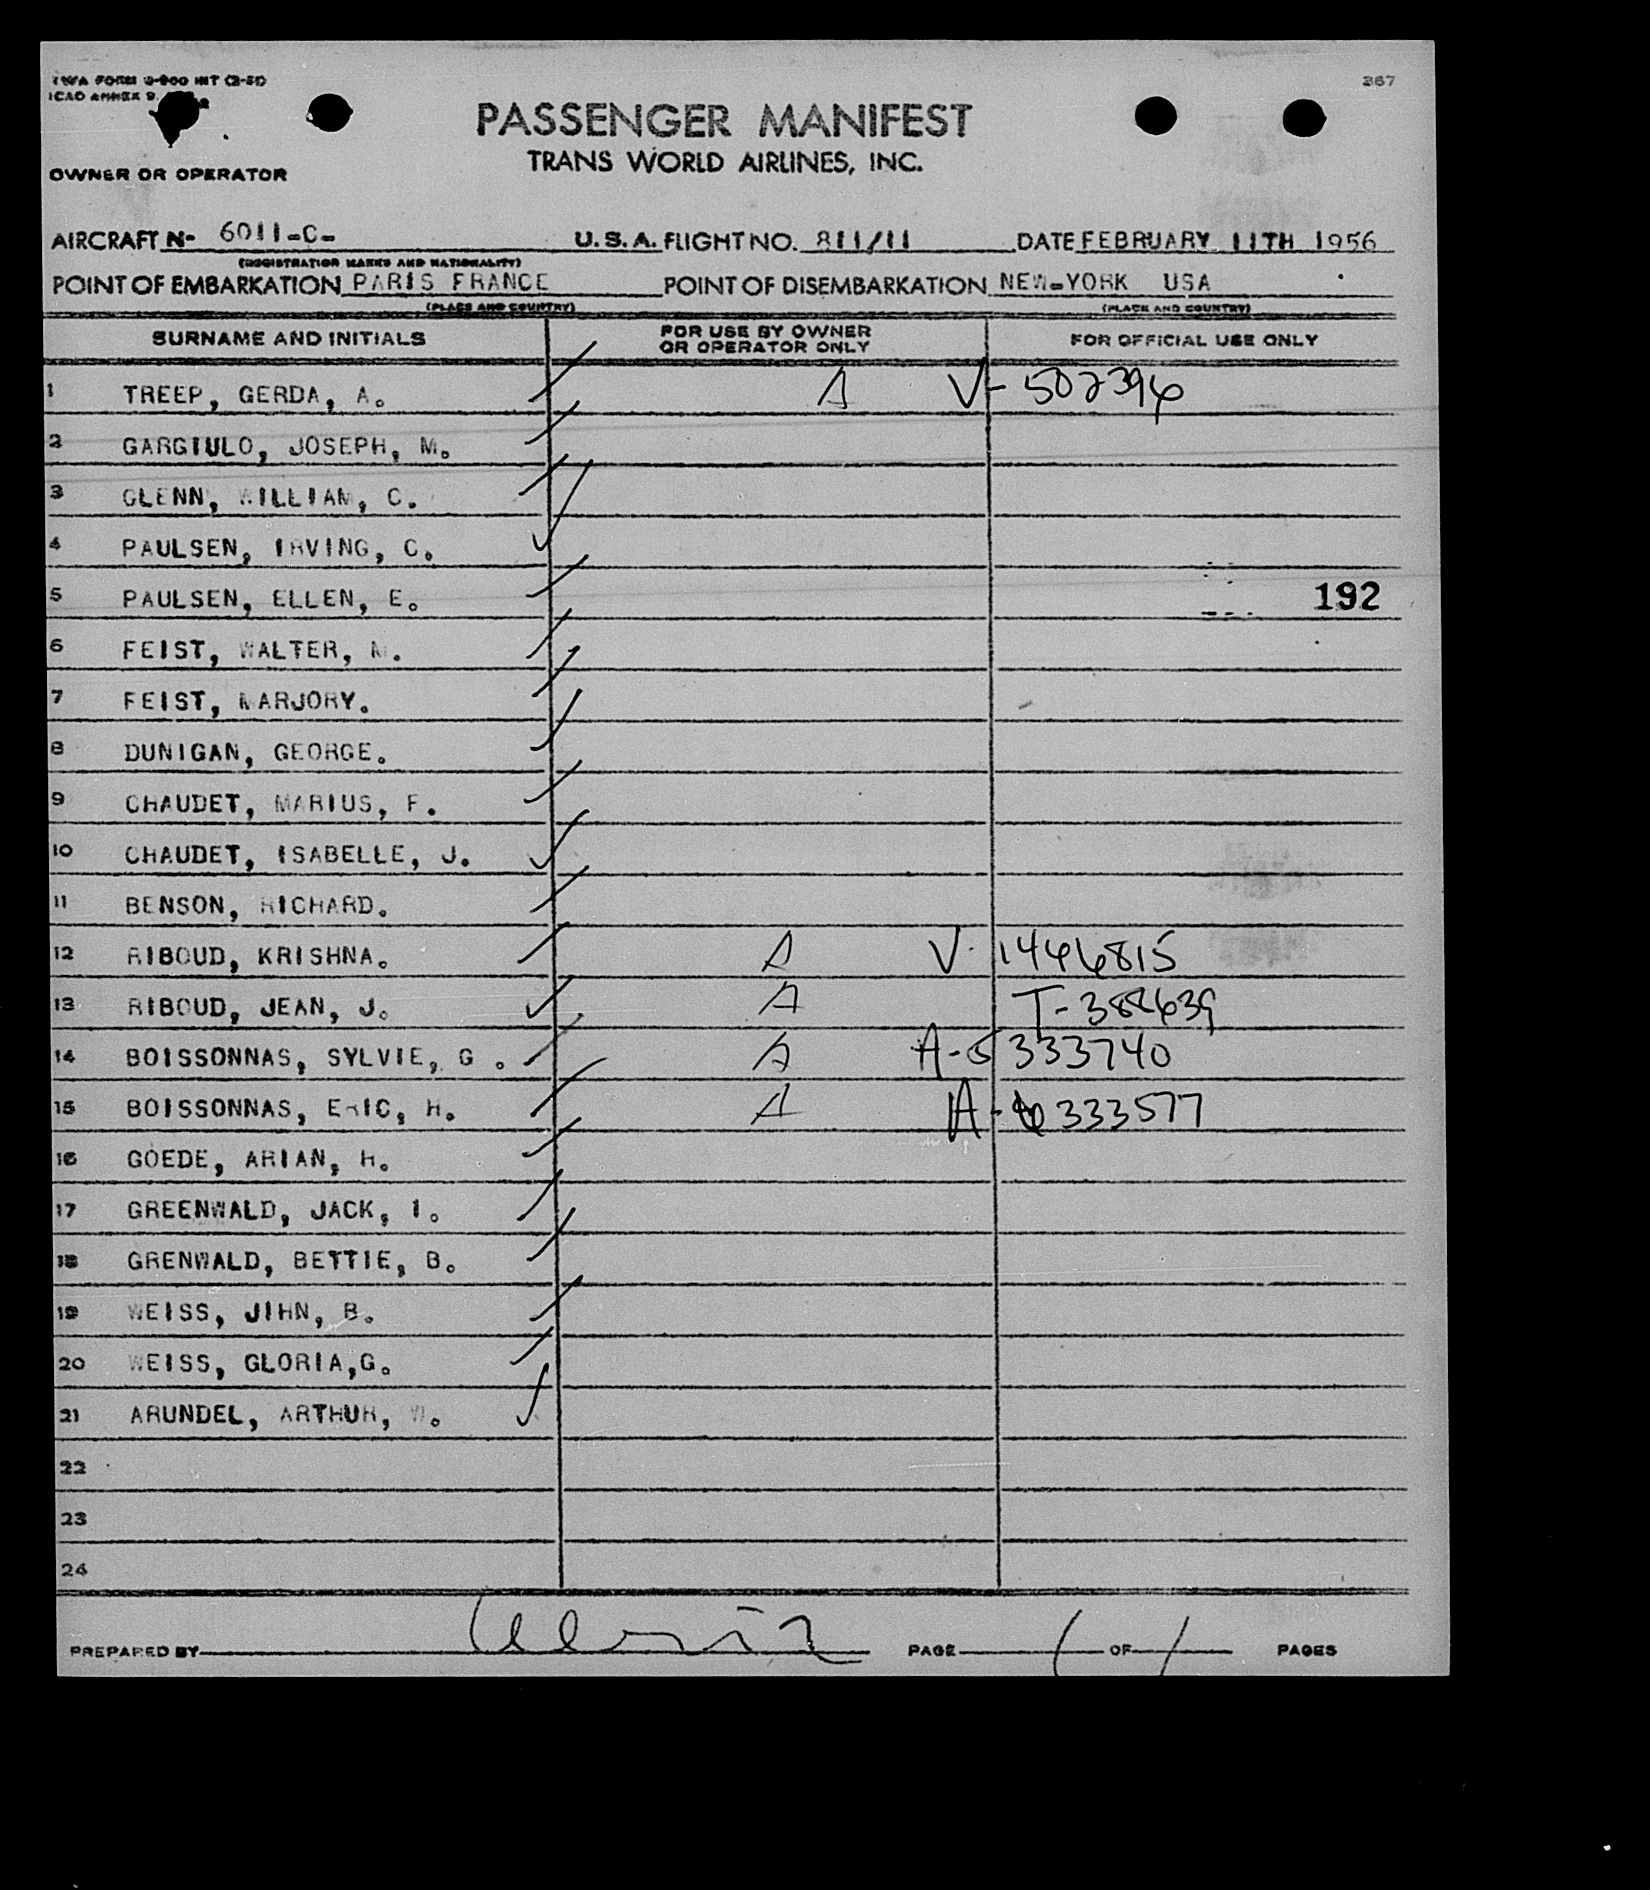 TWA FORM 0-900 INT (2-51)
367
ICAO ANNEX 9,
PASSENGER MANIFEST
TRANS WORLD AIRLINES, INC.
OWNER OR OPERATOR
AIRCRAFT N- 6011-C- U.S.A. FLIGHT NO. 811/11 DATE FEBRUARY 11TH 1956
(REGISTRATION MARKS AND NATIONALITY)
POINT OF EMBARKATION PARIS FRANCE POINT OF DISEMBARKATION NEW-YORK USA
(PLACE AND COUNTRY) (PLACE AND COUNTRY)
SURNAME AND INITIALS FOR USE BY OWNER OR OPERATOR ONLY FOR OFFICIAL USE ONLY
1 TREEP, GERDA, A. A V-502396
2 GARGIULO, JOSEPH, M.
3 GLENN, WILLIAM, C.
4 PAULSEN, IRVING, C.
5 PAULSEN, ELLEN, E. 192
6 FEIST, WALTER, M.
7 FEIST, MARJORY.
8 DUNIGAN, GEORGE.
9 CHAUDET, MARIUS, F.
10 CHAUDET, ISABELLE, J.
11 BENSON, RICHARD.
12 RIBOUD, KRISHNA. A V-1446815
13 RIBOUD, JEAN, J. A T-388639
14 BOISSONNAS, SYLVIE, G. A A-5333740
15 BOISSONNAS, ERIC, H. A A-6333577
16 GOEDE, ARIAN, H.
17 GREENWALD, JACK, I.
18 GRENWALD, BETTIE, B.
19 WEISS, JIHN, B.
20 WEISS, GLORIA,G.
21 ARUNDEL, ARTHUR, W.
22
23
24
PREPARED BY PAGE 1 OF 1 PAGES